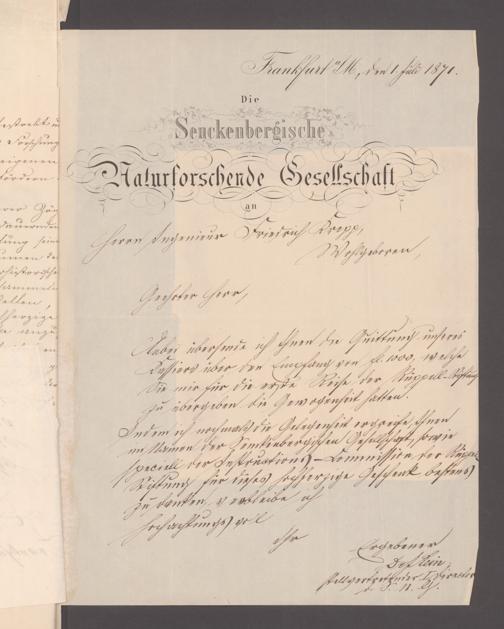 Frankfurt a/M, den 1. Juli 1871.
Die
Senckenbergische
Naturforschende Gesellschaft
an
Herrn Ingenieur Friedrich
Wohlgeboren,
Geehrter Herr,
Anbei übersende ich Ihnen die Quittung unseres
Kassiers über den Empfang von fl. 1000, welche
Sie mir für die erste Reihe der Rüppell-Stiftung
zu übergeben die Gewogenheit hatten.
Indem ich nochmals die Gelegenheit ergreife, Ihnen
im Namen der Senkenbergischen Gesellschaft, sowie
speciell der Instructions-Commission der Rüppell
Stiftung für dieses hochherzige Geschenk bestens
zu danken, verbleibe ich
hochachtungsvoll
Ihr
Ergebener
stellvertretender Director
d. S. n. G.